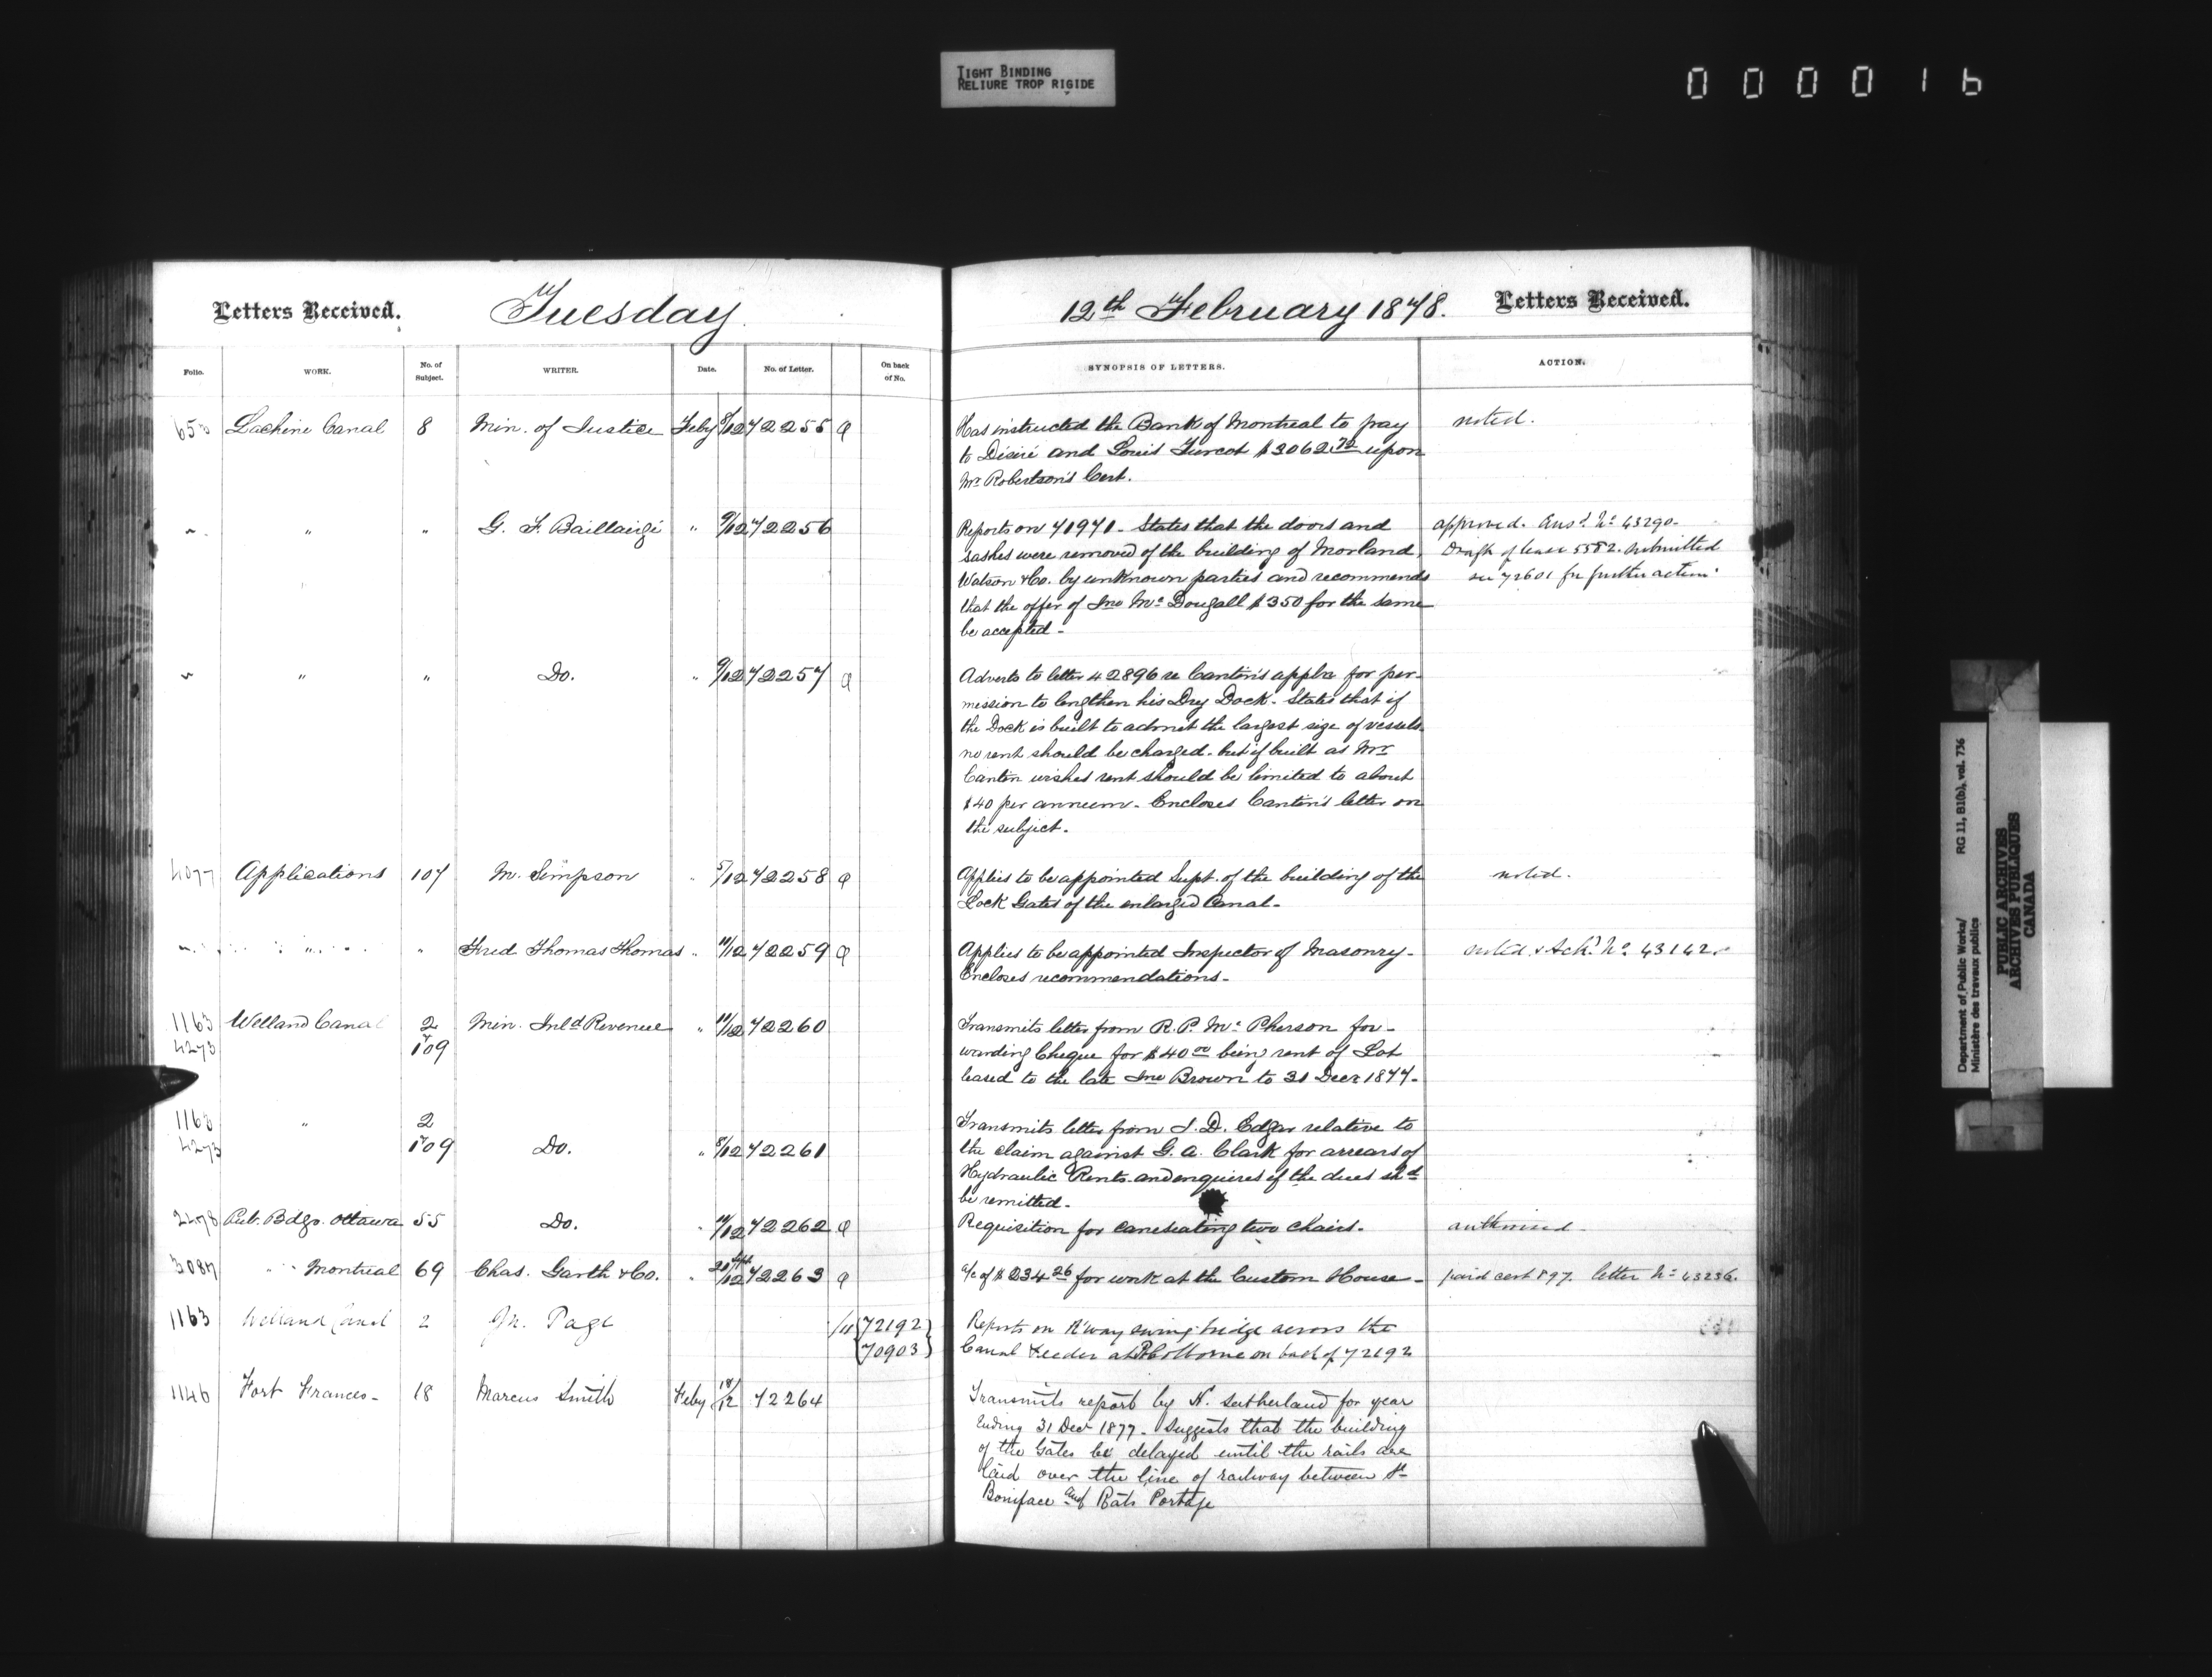 TIGHT BINDING
RELIURE TROP RIGIDE
000016
Letters Received. Tuesday
Folio. WORK. No. of Subject. WRITER. Date. No. of Letter. On back of No.
Lachine Canal 8 Min. of Justice Feby 8/12 72255 a
" " G. F. Baillairgé " 9/12 72256
" " Do. " 9/12 72257 a
4077 Applications 107 M. Simpson " 5/12 72258 a
" " Fred Thomas Thomas " 11/12 72259 a
1163 Welland Canal 2 Min. Inld Revenue " 11/12 72260
4273 & 109
1163 " 2
4273 & 109 Do. " 8/12 72261
2478 Pub. Bdgs. Ottawa 55 Do. " 11/12 72262 a
3087 " " Montreal 69 Chas. Garth & Co. " /12 72263 a
1163 Welland Canal 2 Jn. Page /11 {72192}
{70903}
1146 Fort Frances - 18 Marcus Smith Feby /12 72264
12th February 1878. Letters Received.
SYNOPSIS OF LETTERS. ACTION.
Has instructed the Bank of Montreal to pay noted.
to Désiré and Louis Turcot $3062.72 upon
Mr. Robertson's Cert.
Reports on 71971 - States that the doors and approved. Ansd. No. 43290-
sashes were removed of the building of Morland, Draft of lease 5582. submitted
Watson & Co. by unknown parties and recommends see 72601 for further action.
that the offer of Jno McDougall $350 for the same
be accepted -
Adverts to letter 42896 re Cantin's appln for per-
mission to lengthen his Dry Dock - States that if
the Dock is built to admit the largest size of vessels
no rent should be charged. but if built as Mr
Cantin wishes rent should be limited to about
$40 per annum. Encloses Cantin's letter on
the subject.
Applies to be appointed Supt. of the building of the noted.
Lock Gates of the enlarged Canal -
Applies to be appointed Inspector of Masonry - noted & Ackd. No. 43142.
Encloses recommendations -
Transmits letter from R. P. McPherson for-
warding Cheque for $40.00 being rent of Lot
leased to the late Jno Brown to 31 Decr 1877 -
Transmits letter from J. D. Edgar relative to
the claim against G. A. Clark for arrears of
Hydraulic Rents and enquires if the dues shd
be remitted -
Requisition for caneseating two chairs. authorised -
a/c of $234.26 for work at the Custom House - paid cert 897. letter No. 43236.
Reports on R'way swing bridge across the
Canal Feeder at Pt Colborne on back of 72192
Transmits report by H. Sutherland for year
Ending 31 Decr 1877 - Suggests that the building
of the Gates be delayed until the rails are
laid over the line of railway between St
Boniface and Rats Portage
Department of Public Works/ RG 11, B1(b), vol. 736
Ministère des travaux publics
PUBLIC ARCHIVES
ARCHIVES PUBLIQUES
CANADA